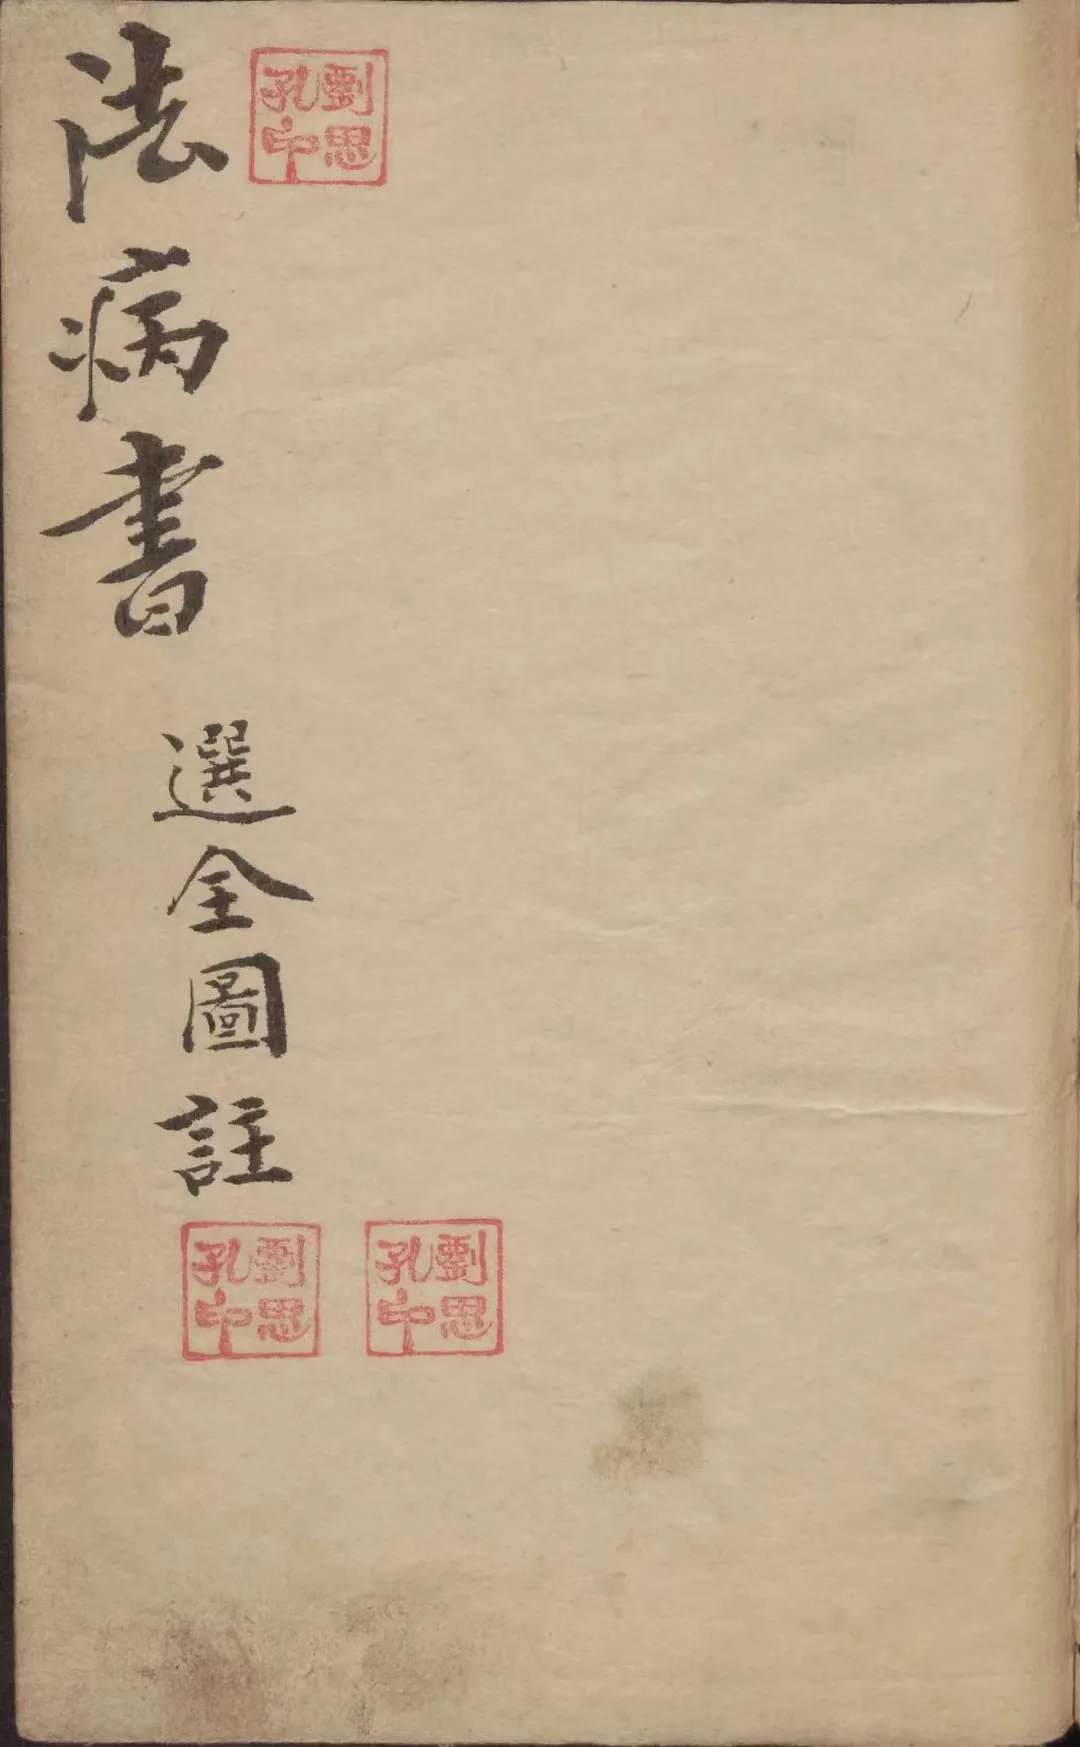 祛病書
選全圖註
劉思
孔印
劉思
孔印
劉思
孔印